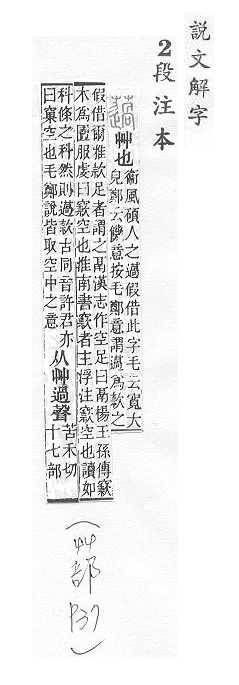 説文解字
2段注本
薖
艸也
衞風碩人之薖假借此字毛云寬大
皃鄭云饑意按毛鄭意謂薖爲款之
假借爾雅款足者謂之鬲漢志作空足曰鬲楊王孫傳窾
木爲匵服虔曰窾空也淮南書窾者主浮注窾空也讀如
科條之科然則薖款古同音許君亦
曰窠空也毛鄭說皆取空中之意
从艸過聲
苦禾切
十七部
(艸部 P37)